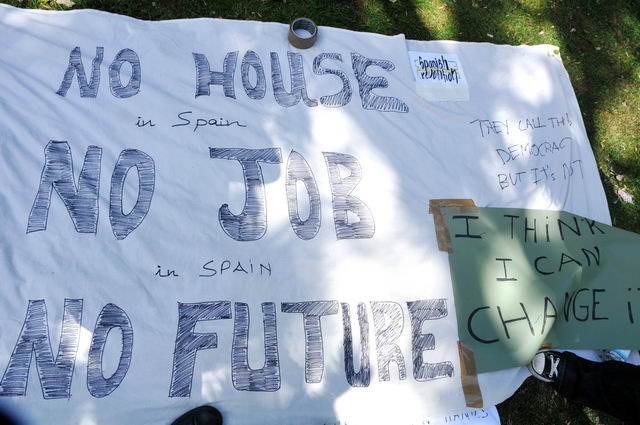 NO HOUSE
in Spain
NO JOB
in SPAIN
NO FUTURE
Spanish
revolution
THEY CALL THIS
DEMOCRACY
BUT IT'S NOT
I THINK
I CAN
CHANGE